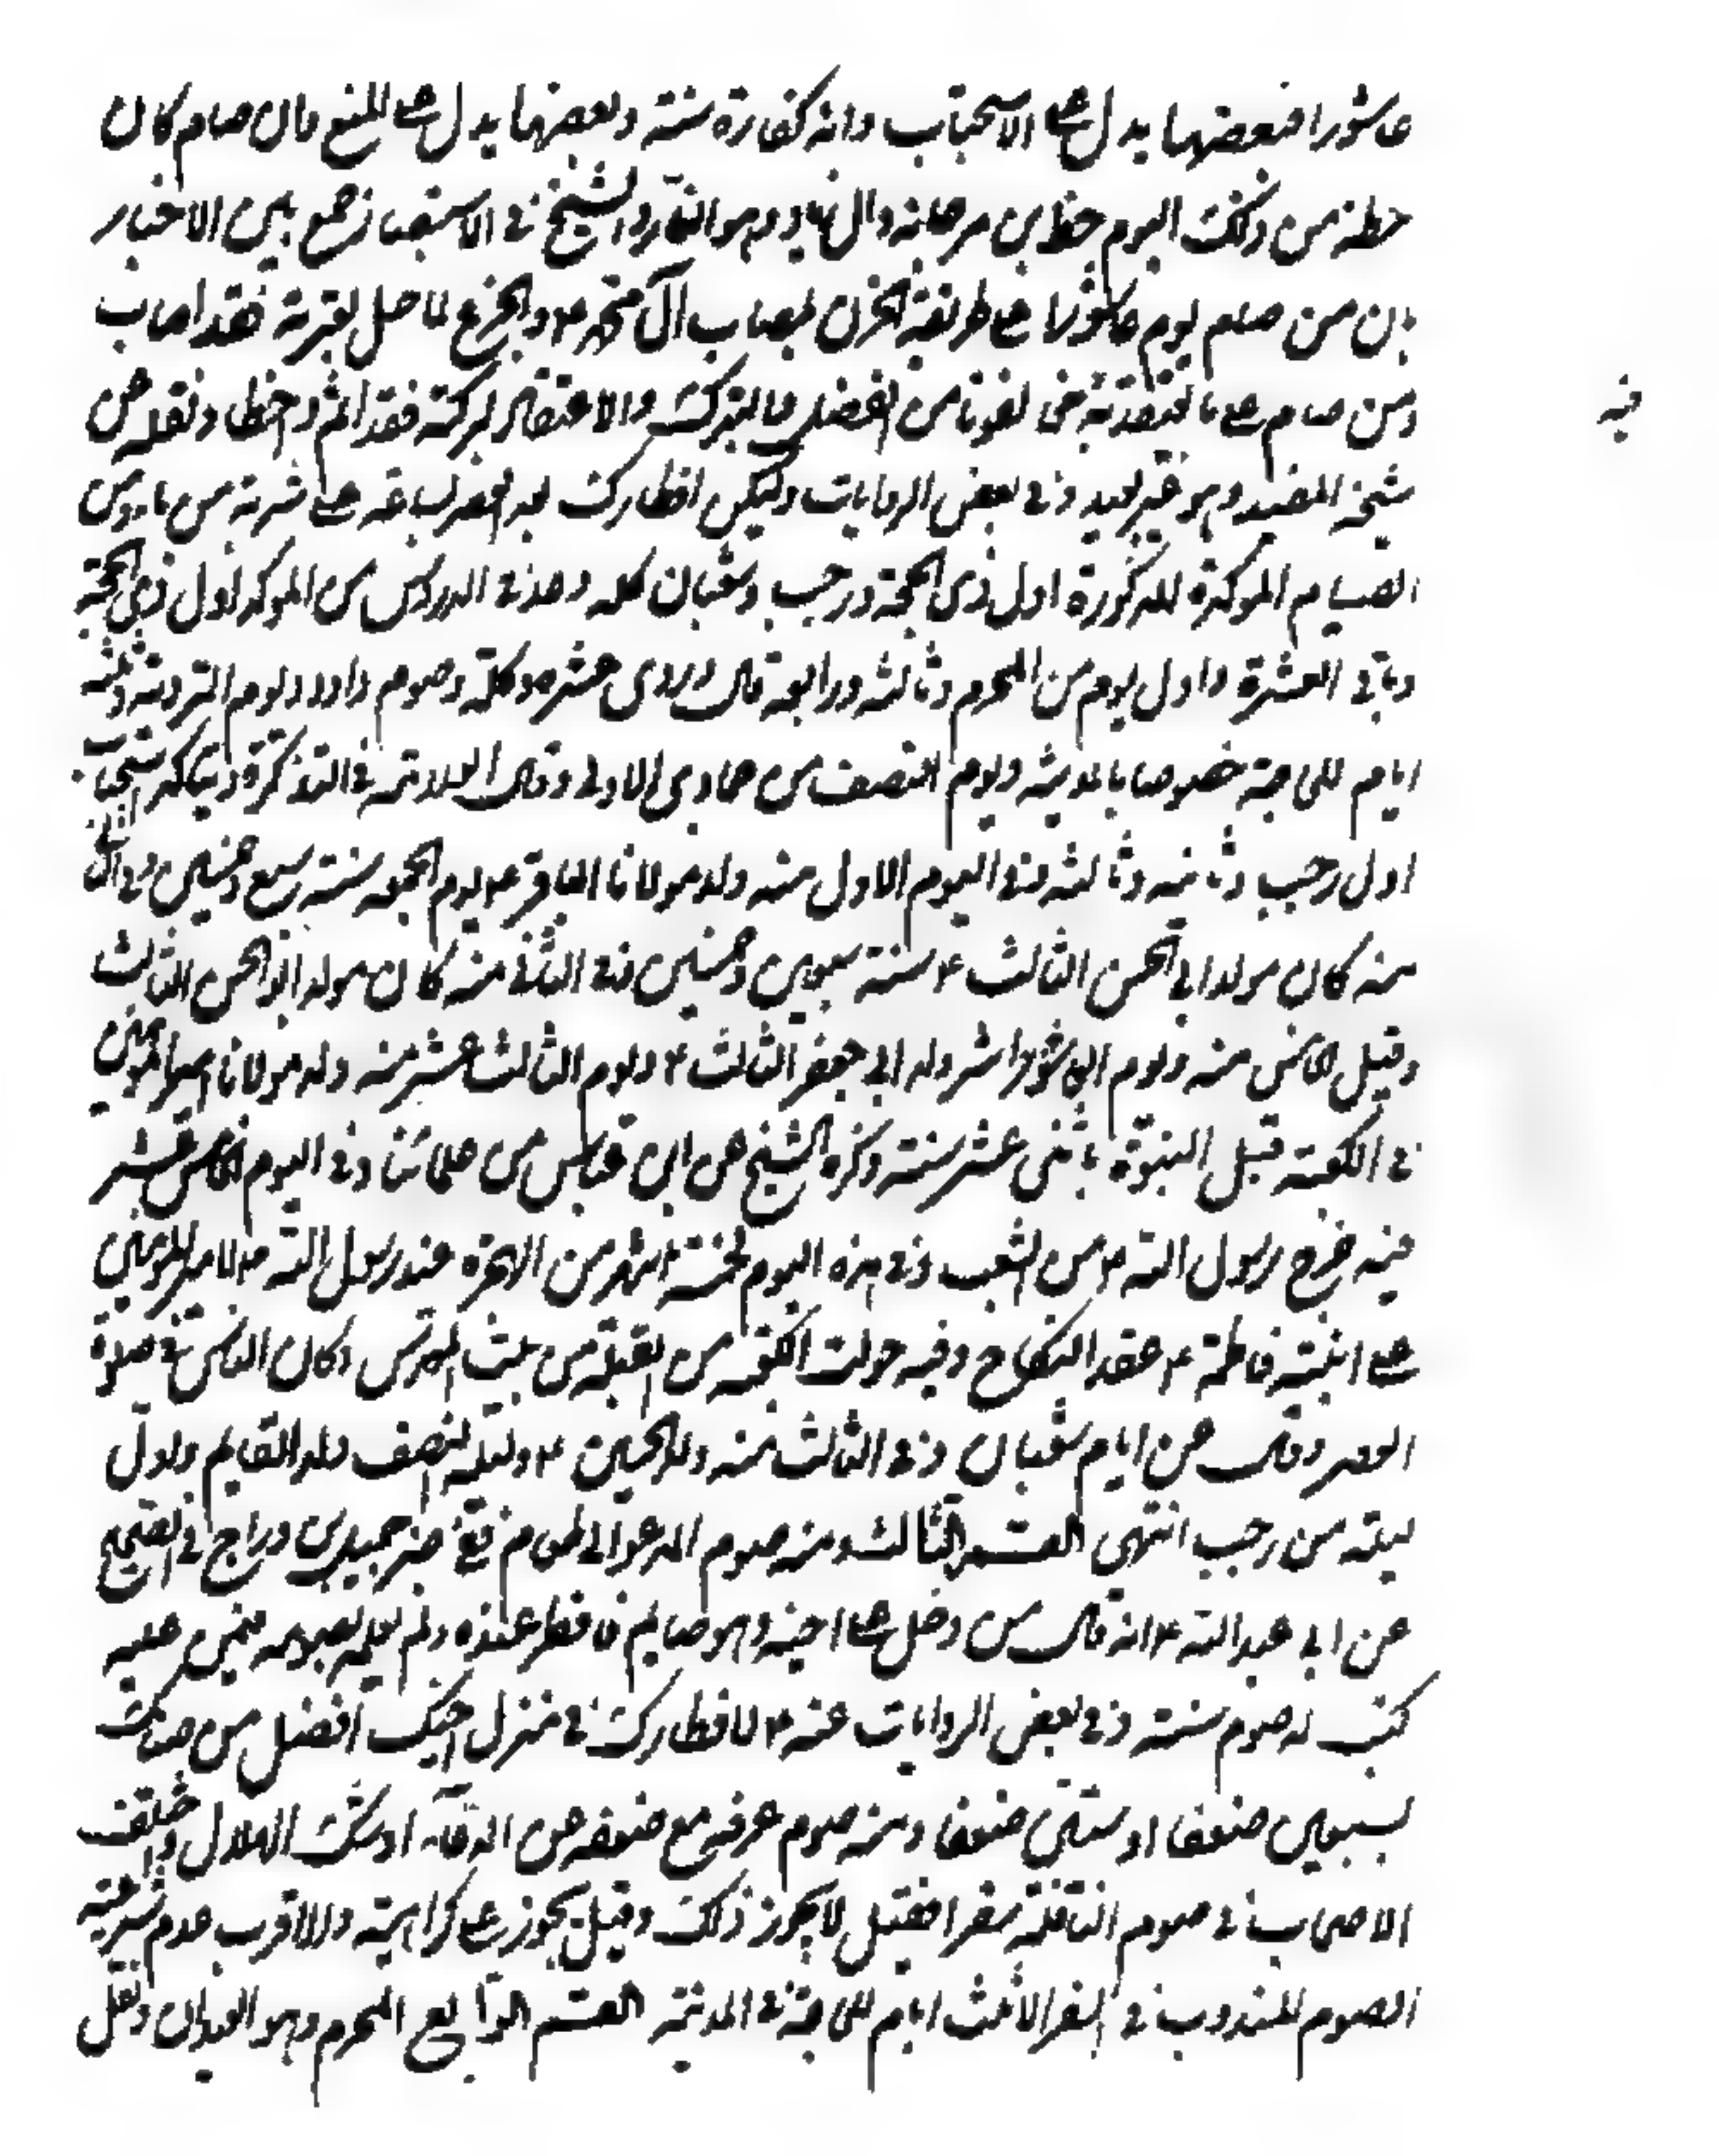 عاشورا فبعضها يدل على الاستحباب وانه كفارة سنة وبعضها يدل على المنع وان من صام كان
حظه من ذلك اليوم حظ ابن مرجانة وال زياد وهو النار والشيخ في الاستبصار جمع بين الاخبار
بان من صام يوم عاشورا على طريقة الحزن لمصاب آل محمد ع والجزع لما حل بعترته فقد اصاب
ومن صام على ما يعتقد فيه مخالفونا من الفضل والتبرك والاعتقاد لبركته فقد اثم واخطا ونقله عن
شيخه المفيد وهو غير بعيد وفي بعض الروايات وليكن افطارك بعد العصر بساعة على شربة من ماء ومن
الصيام المؤكدة المذكورة اول ذي الحجة ورجب وشعبان كله وعد في الدروس من المؤكد اول ذي الحجة
وباقي العشرة واول يوم من المحرم وثالثه ورابعه قال وروى عشره وكله وصوم داود ويوم التروية وثلثة
ايام للحاجة خصوصا بالمدينة ويوم النصف من جمادى الاولى وقال العلامة في التذكرة ويتاكد استحباب
اول رجب وثانيه وثالثه ففي اليوم الاول منه ولد مولانا الباقر ع يوم الجمعة سنة سبع وخمسين وفي الثاني
منه كان مولد ابي الحسن الثالث ع سنة سبعين وخمسين وفي الثاني منه كان مولد ابو الحسن الثالث
وقيل الخامس منه ويوم العاشر ولد ابي جعفر الثالث ع ويوم الثالث عشر منه ولد مولانا امير المؤمنين
في الكعبة قبل النبوة باثنى عشر سنة ذكره الشيخ عن ابن عياش من علمائنا وفي اليوم الخامس عشر
فيه خرج رسول الله ص من الشعب وفي هذه اليوم لخمسة اشهر من الهجرة عقد رسول الله ص لامير المؤمنين
على ابنته فاطمة ع عقد النكاح وفيه حولت القبلة من بيت المقدس وكان الناس في صلوة
العصر وقال عن ايام شعبان وفي الثالث منه ولد الحسين ع وليلة النصف ولد القايم واول
ليلة من رجب انتهى القسم الثالث ومنه صوم المدعو الى طعام ففي خبر جميل بن دراج في الصحيح
عن ابي عبد الله ع انه قال من دخل على اخيه وهو صايم فافطر عنده ولم يعلمه بصومه فيمن عليه
كتب له صوم سنة وفي بعض الروايات عنه ع لافطارك في منزل اخيك افضل من صيامك
بسبعين ضعفا او ستين ضعفا ومنه صوم عرفة مع ضعفه عن الدعاء او شك الهلال واختلف
الاصحاب في صوم النافلة سفرا فقيل لا يجوز ذلك وقيل يجوز على كراهية والاقرب عدم شرعية
الصوم المندوب في السفر الا ثلث ايام للحاجة في المدينة القسم الرابع المحرم وهو العيدان ونقل
فيه